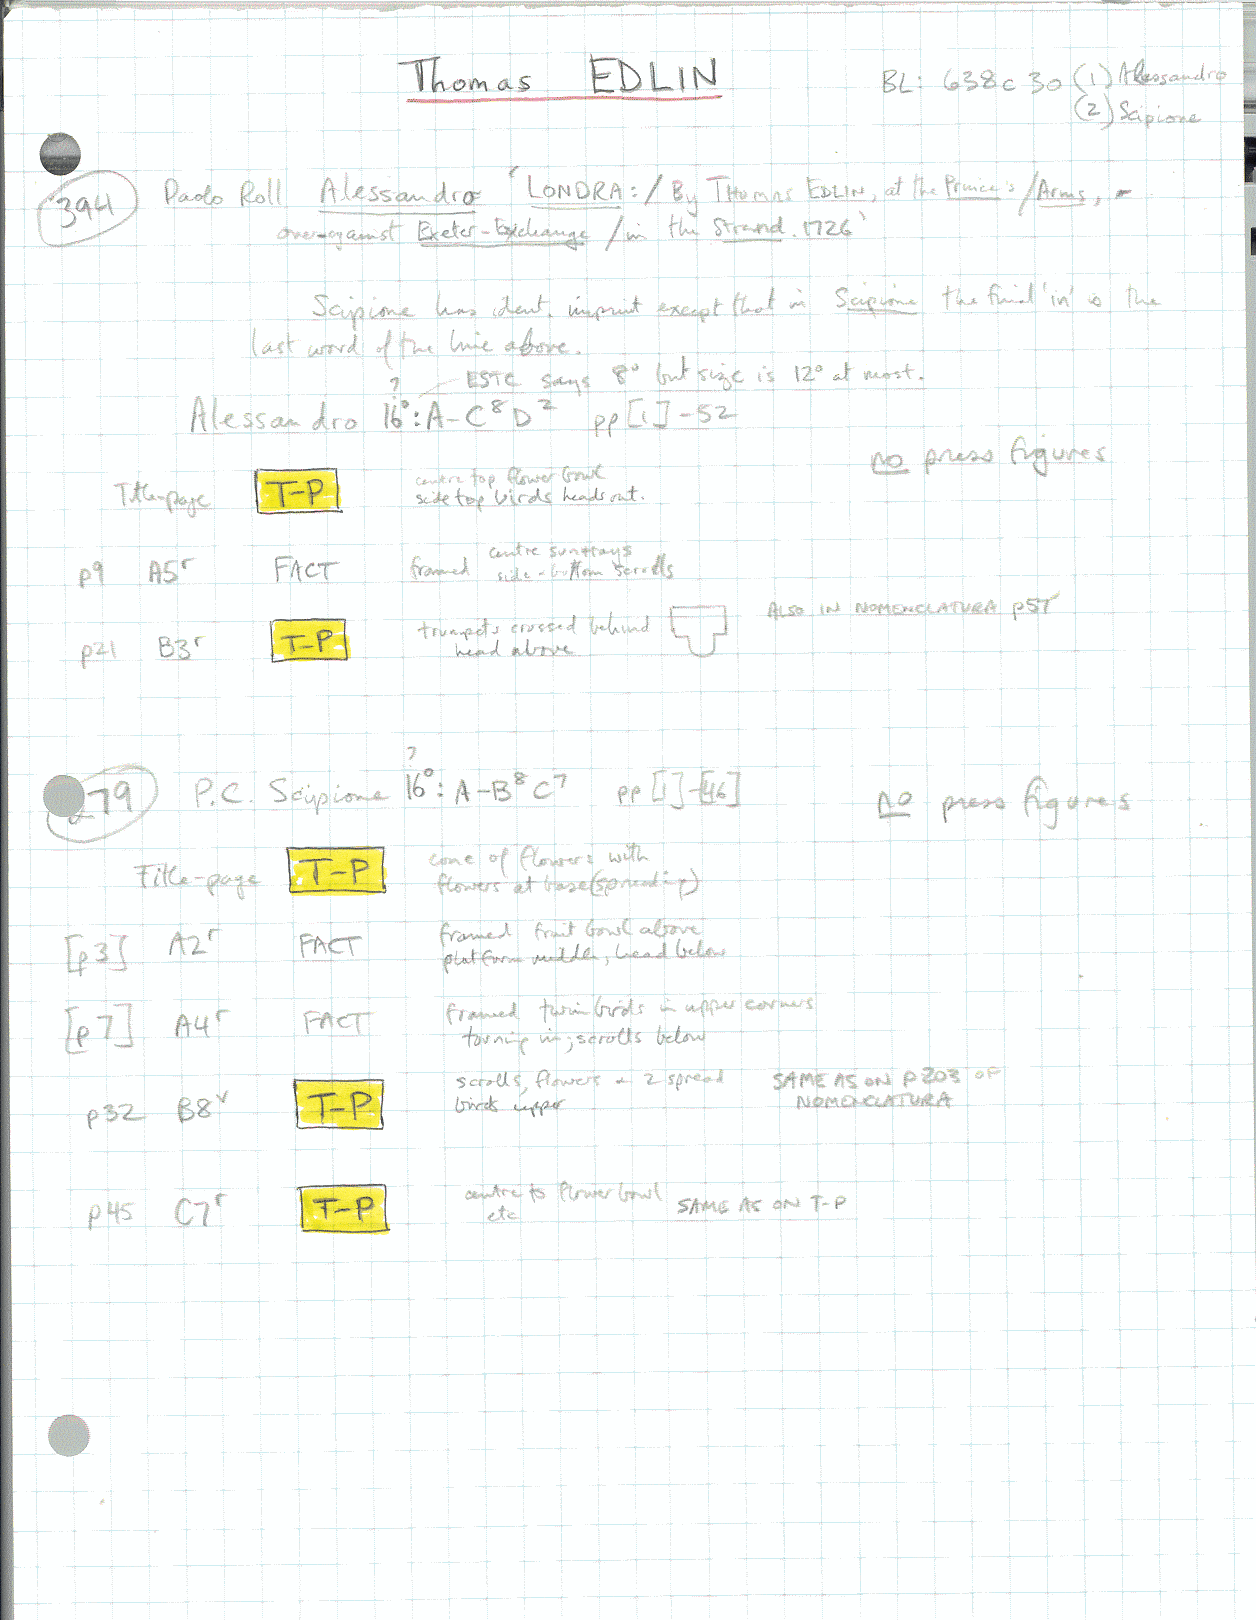 Thomas EDLIN
BL: 638c 30 (1) Alessandro
(2) Scipione
394 Paolo Roll Alessandro 'LONDRA:/ By THOMAS EDLIN, at the Prince's /Arms, -
over-against Exeter-Exchange /in the Strand. 1726'
Scipione has ident. imprint except that in Scipione the final 'in' is the
last word of the line above.
? ESTC says 8° but size is 12° at most.
Alessandro 16°: A-C⁸ D² pp [1]-52
no press figures
Title-page T-P centre top flower bowl
side top birds heads out.
p9 A5r FACT framed centre sun+rays
side-bottom scrolls
p21 B3r T-P trumpets crossed behind
head above
ALSO IN NOMENCLATURA p57
?
279 P.C. Scipione 16°: A-B⁸ C⁷ pp [1]-[46]
no press figures
Title-page T-P cone of flowers with
flowers at base (spreading)
[p3] A2r FACT framed fruit bowl above
platform middle, head below
[p7] A4r FACT framed twin birds in upper corners
turning in; scrolls below
p32 B8v T-P scrolls, flowers + 2 spread
birds upper
SAME AS ON p203 OF
NOMENCLATURA
p45 C7r T-P centre to flower bowl
etc
SAME AS ON T-P